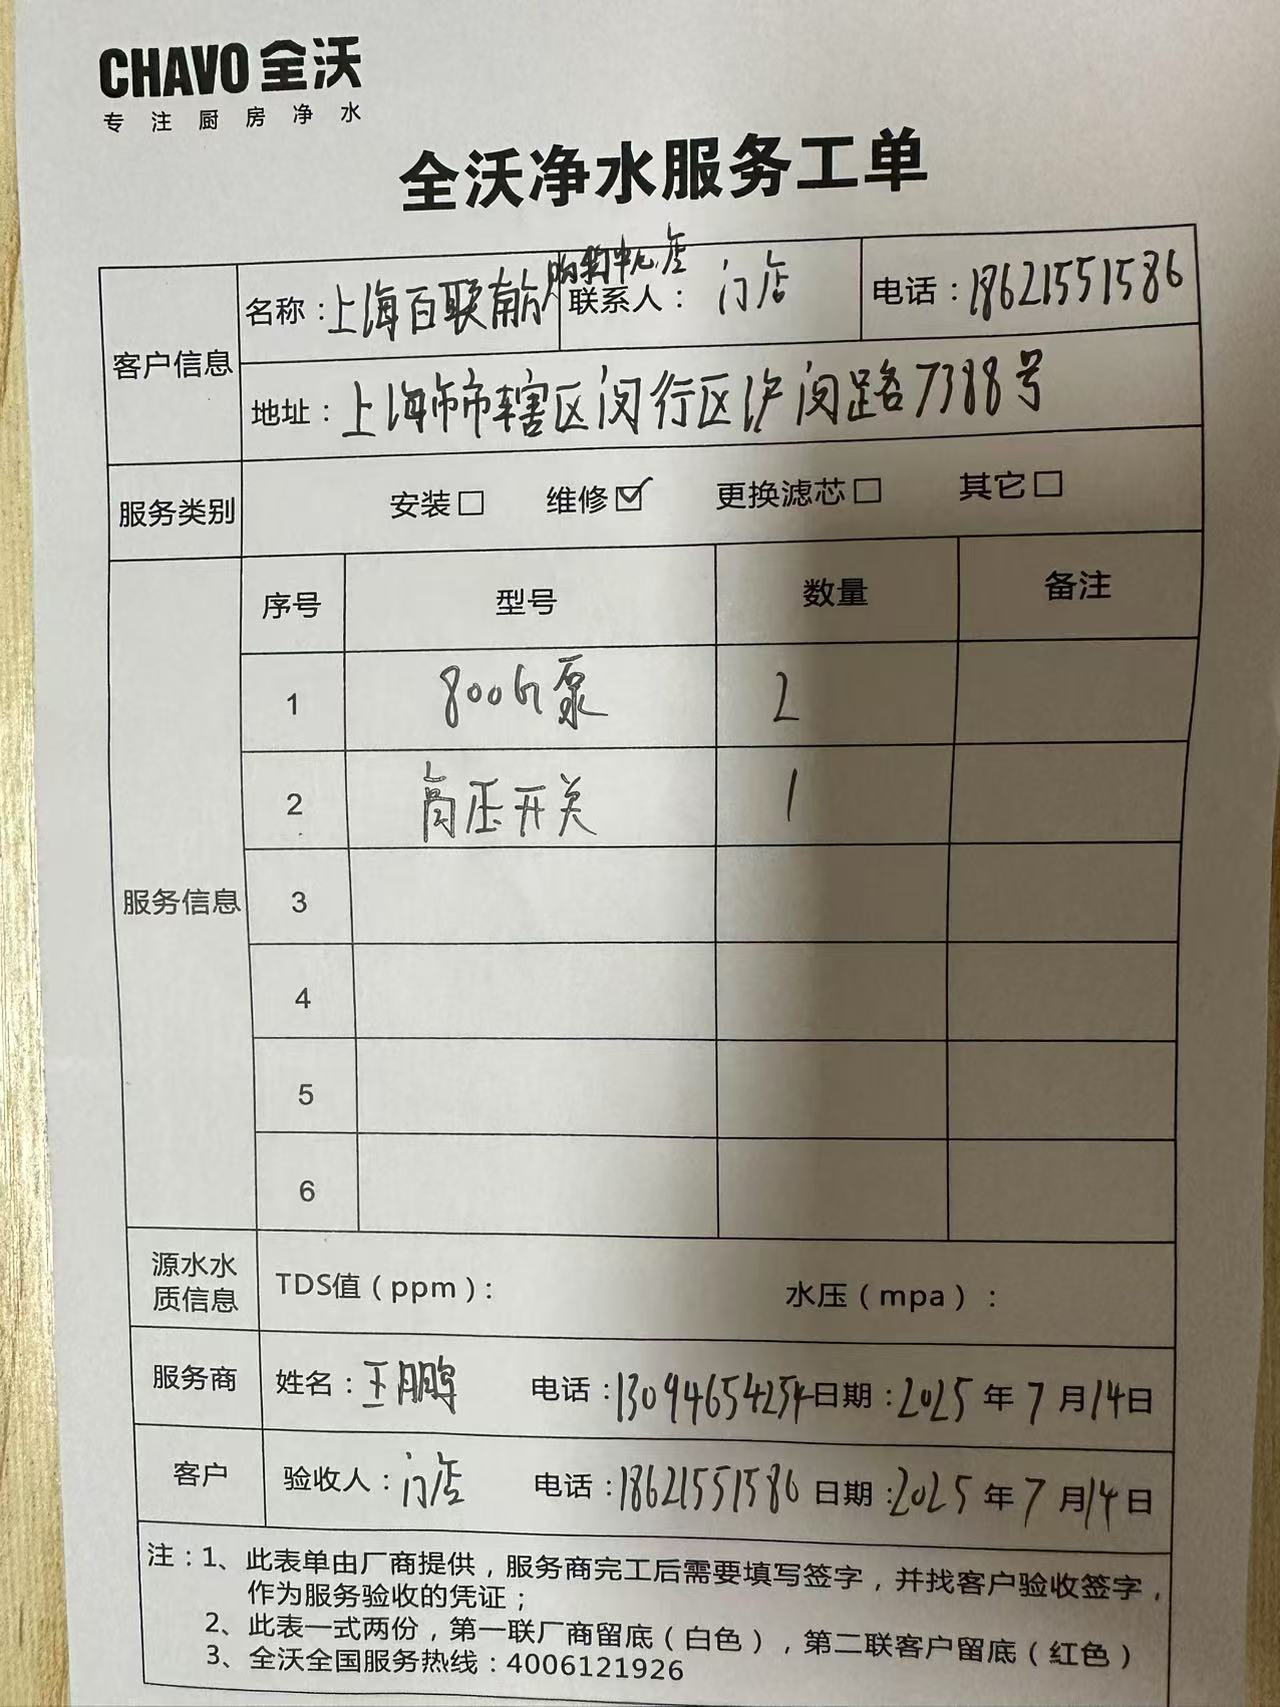 CHAVO 全沃
专注厨房净水
全沃净水服务工单
客户信息
名称：上海百联南方购物中心店
联系人：门店
电话：18621551586
地址：上海市市辖区闵行区沪闵路7388号
服务类别
安装□ 维修☑ 更换滤芯□ 其它□
服务信息
序号 型号 数量 备注
1 800G泵 2
2 高压开关 1
3
4
5
6
源水水
质信息
TDS值（ppm）： 水压（mpa）：
服务商 姓名：王鹏 电话：13094654254 日期：2025年7月14日
客户 验收人：门店 电话：18621551586 日期：2025年7月14日
注：1、此表单由厂商提供，服务商完工后需要填写签字，并找客户验收签字，
作为服务验收的凭证；
2、此表一式两份，第一联厂商留底（白色），第二联客户留底（红色）
3、全沃全国服务热线：4006121926